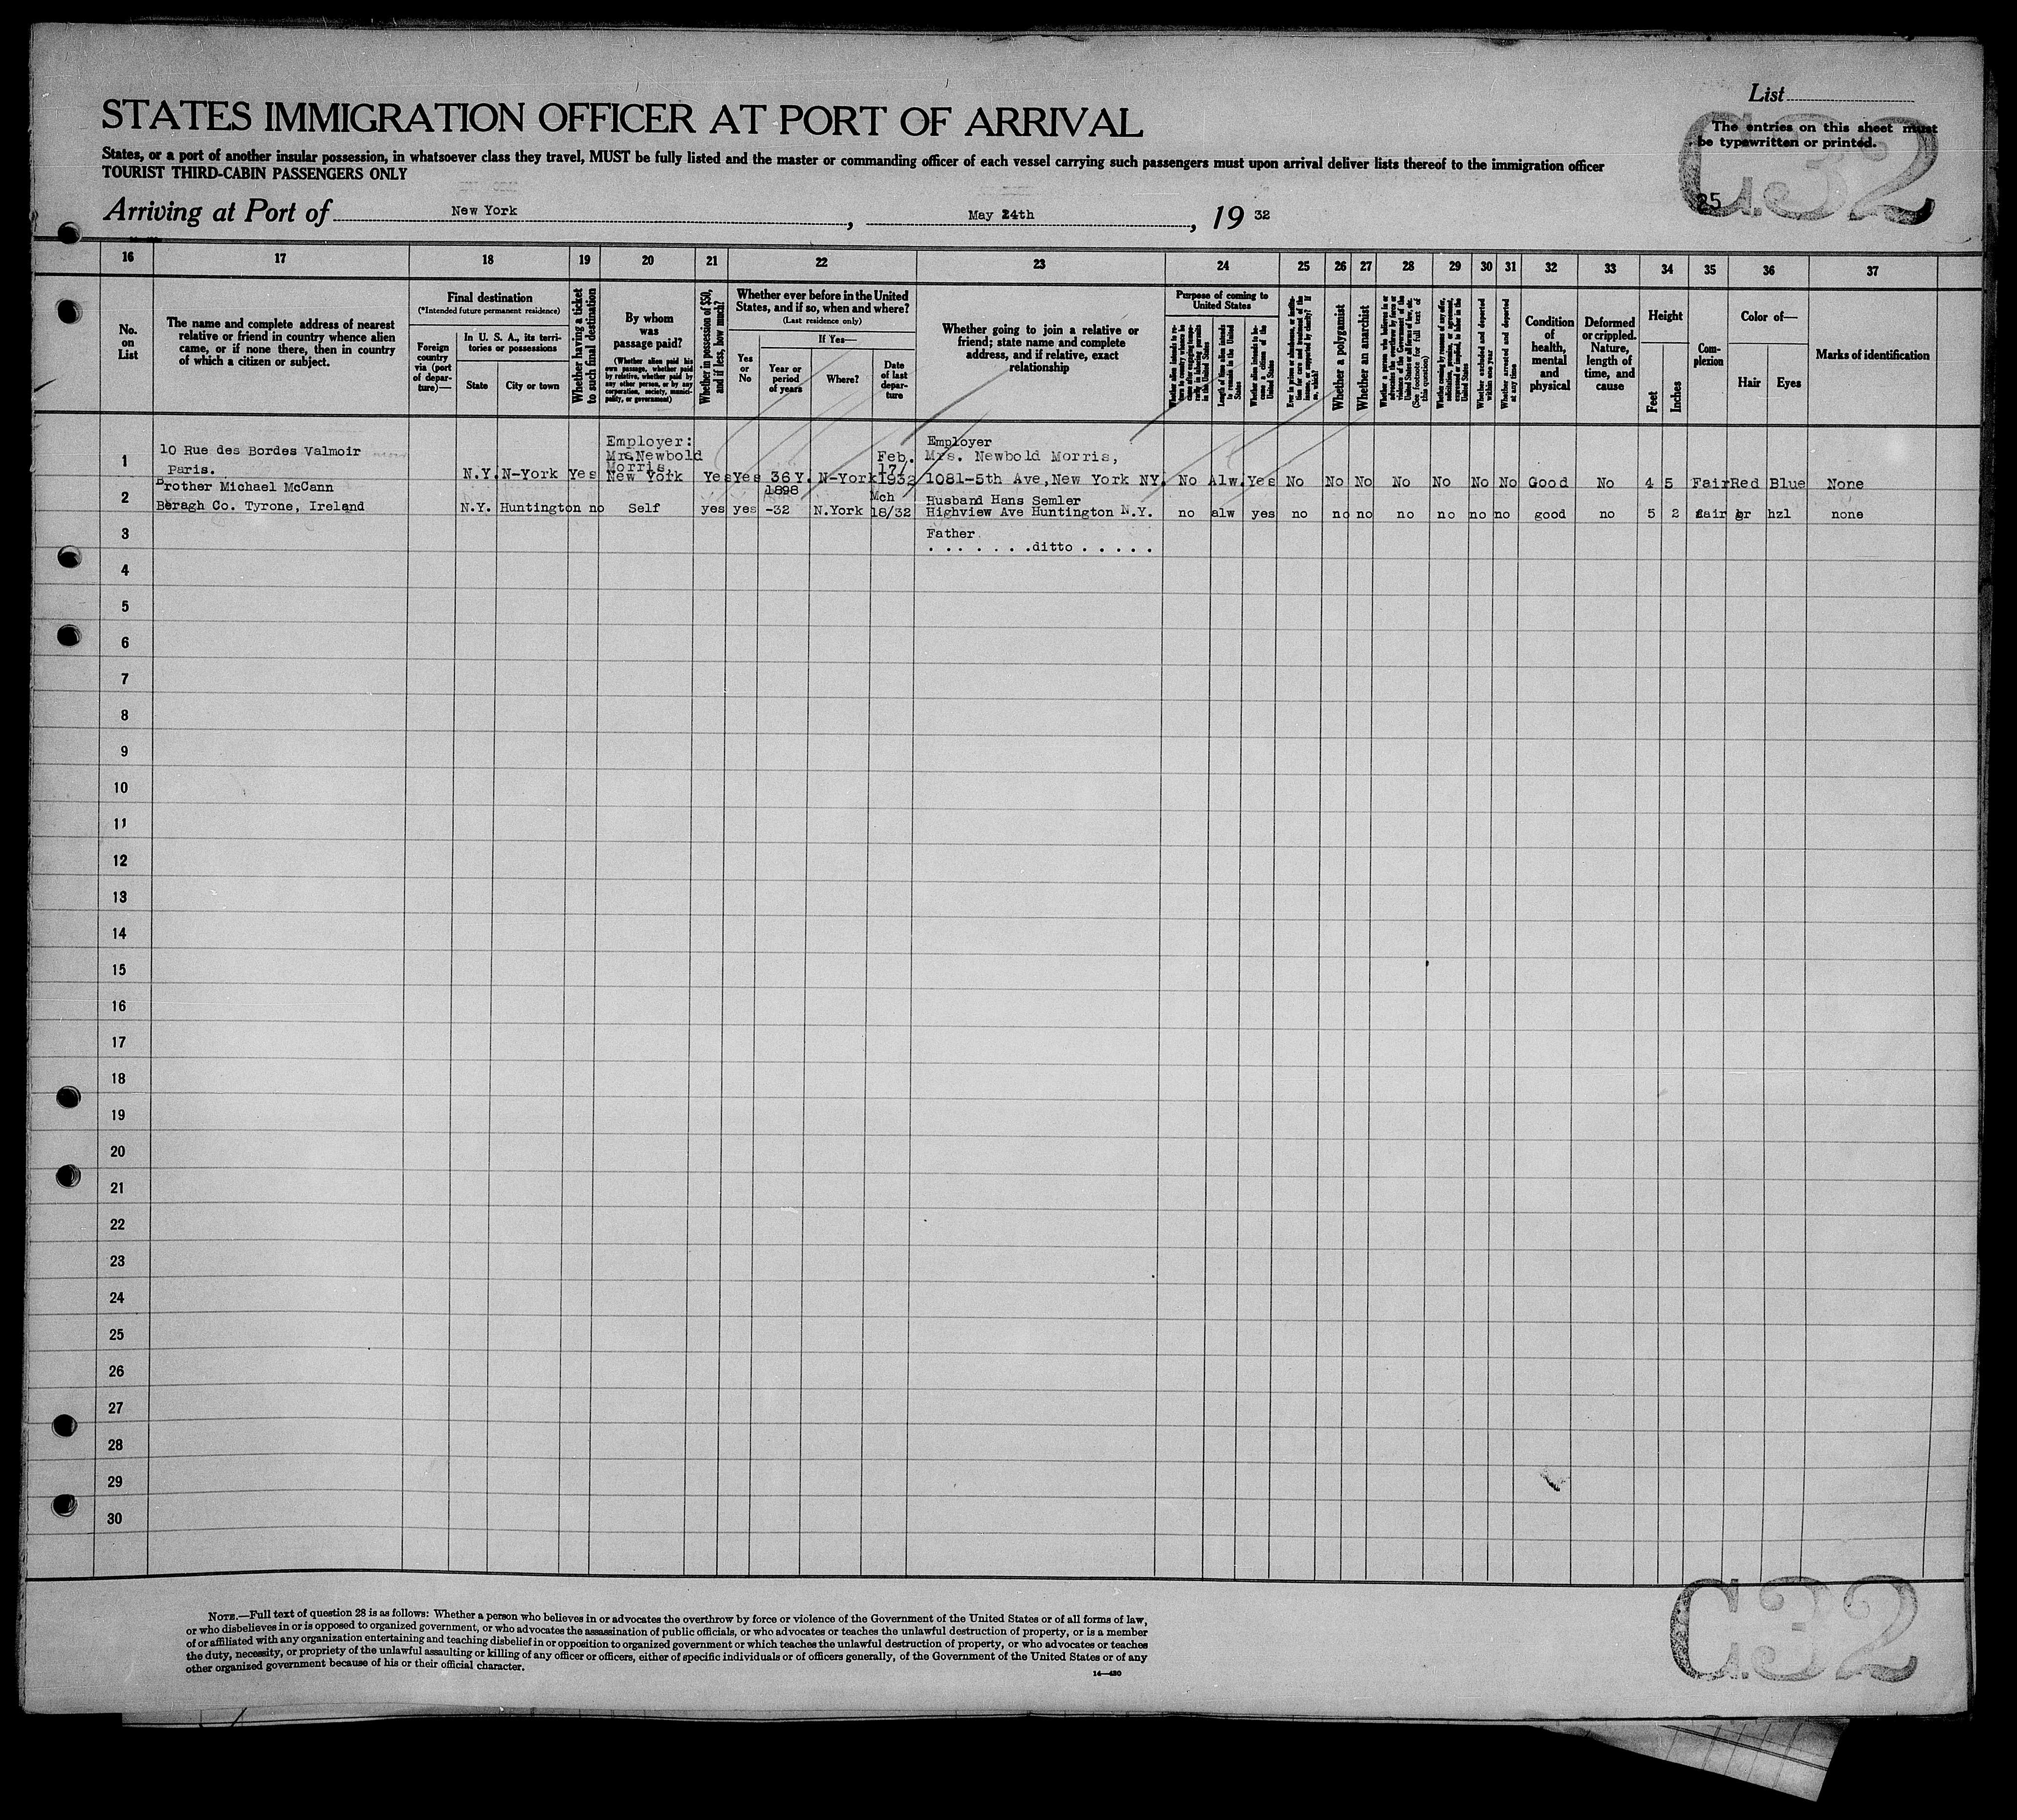 List
STATES IMMIGRATION OFFICER AT PORT OF ARRIVAL
The entries on this sheet must
be typewritten or printed.
States, or a port of another insular possession, in whatsoever class they travel, MUST be fully listed and the master or commanding officer of each vessel carrying such passengers must upon arrival deliver lists thereof to the immigration officer
TOURIST THIRD-CABIN PASSENGERS ONLY
C.32
25
Arriving at Port of New York, May 24th, 19 32
16 17 18 19 20 21 22 23 24 25 26 27 28 29 30 31 32 33 34 35 36 37
No.
on
List
The name and complete address of nearest
relative or friend in country whence alien
came, or if none there, then in country
of which a citizen or subject.
Final destination
(*Intended future permanent residence)
Foreign
country
via (port
of depar-
ture)—
In U. S. A., its terri-
tories or possessions
State
City or town
Whether having a ticket
to such final destination
By whom
was
passage paid?
(Whether alien paid his
own passage, whether paid
by relative, whether paid by
any other person, or by any
corporation, society, munici-
pality, or government)
Whether in possession of $50,
and if less, how much?
Whether ever before in the United
States, and if so, when and where?
(Last residence only)
Yes
or
No
If Yes—
Year or
period
of years
Where?
Date
of last
depar-
ture
Whether going to join a relative or
friend; state name and complete
address, and if relative, exact
relationship
Purpose of coming to
United States
Length of time alien intends
to remain in the United
States
Whether alien intends to be-
come a citizen of the
United States
Whether a polygamist
Whether an anarchist
(See footnote for full text of
this question)
Whether excluded and deported
within one year
Whether arrested and deported
at any time
Condition
of
health,
mental
and
physical
Deformed
or crippled.
Nature,
length of
time, and
cause
Height
Feet
Inches
Com-
plexion
Color of—
Hair
Eyes
Marks of identification
1 10 Rue des Bordes Valmoir
Paris.
N.Y. N-York Yes
Employer:
Mrs.Newbold
Morris,
New York
Yes Yes 36 Y. N-York
Feb.
17/
1932
Employer
Mrs. Newbold Morris,
1081-5th Ave,New York NY.
No Alw. Yes No No No No No No No Good No 4 5 Fair Red Blue None
2 Brother Michael McCann
Beragh Co. Tyrone, Ireland
N.Y. Huntington no Self yes yes
1898
-32
N.York
Mch
18/32
Husband Hans Semler
Highview Ave Huntington N.Y.
no alw yes no no no no no no no good no 5 2 fair br hzl none
3 Father
. . . . . . .ditto . . . . .
4
5
6
7
8
9
10
11
12
13
14
15
16
17
18
19
20
21
22
23
24
25
26
27
28
29
30
NOTE.—Full text of question 28 is as follows: Whether a person who believes in or advocates the overthrow by force or violence of the Government of the United States or of all forms of law,
or who disbelieves in or is opposed to organized government, or who advocates the assassination of public officials, or who advocates or teaches the unlawful destruction of property, or is a member
of or affiliated with any organization entertaining and teaching disbelief in or opposition to organized government or which teaches the unlawful destruction of property, or who advocates or teaches
the duty, necessity, or propriety of the unlawful assaulting or killing of any officer or officers, either of specific individuals or of officers generally, of the Government of the United States or of any
other organized government because of his or their official character.
14—430
C.32